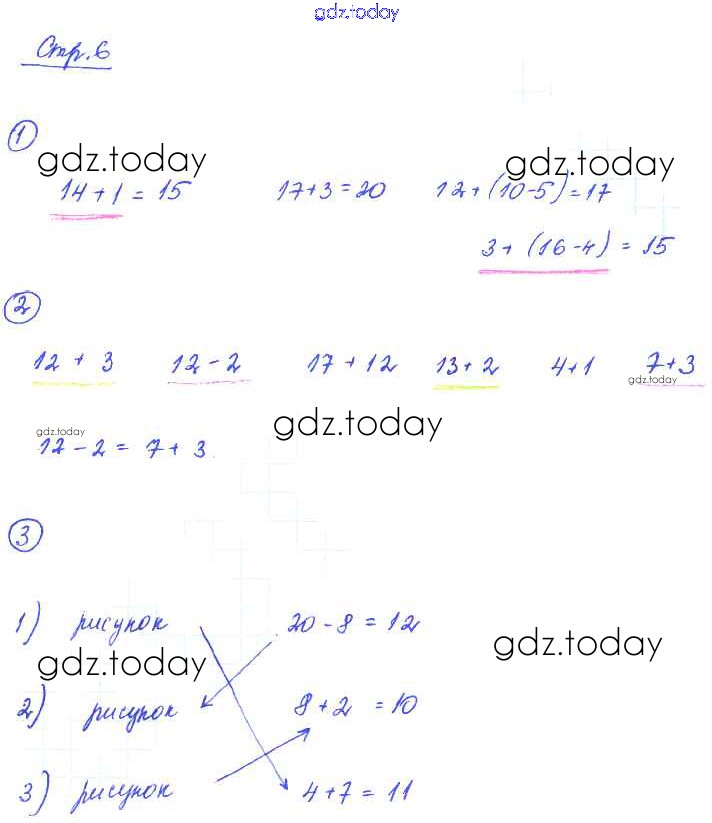 gdz.today
Стр. 6
1
gdz.today gdz.today
14 + 1 = 15 17 + 3 = 20 12 + (10 - 5) = 17
3 + (16 - 4) = 15
2
12 + 3 12 - 2 17 + 12 13 + 2 4 + 1 7 + 3
gdz.today
gdz.today gdz.today
12 - 2 = 7 + 3
3
1) рисунок 20 - 8 = 12
gdz.today gdz.today
2) рисунок 8 + 2 = 10
3) рисунок 4 + 7 = 11